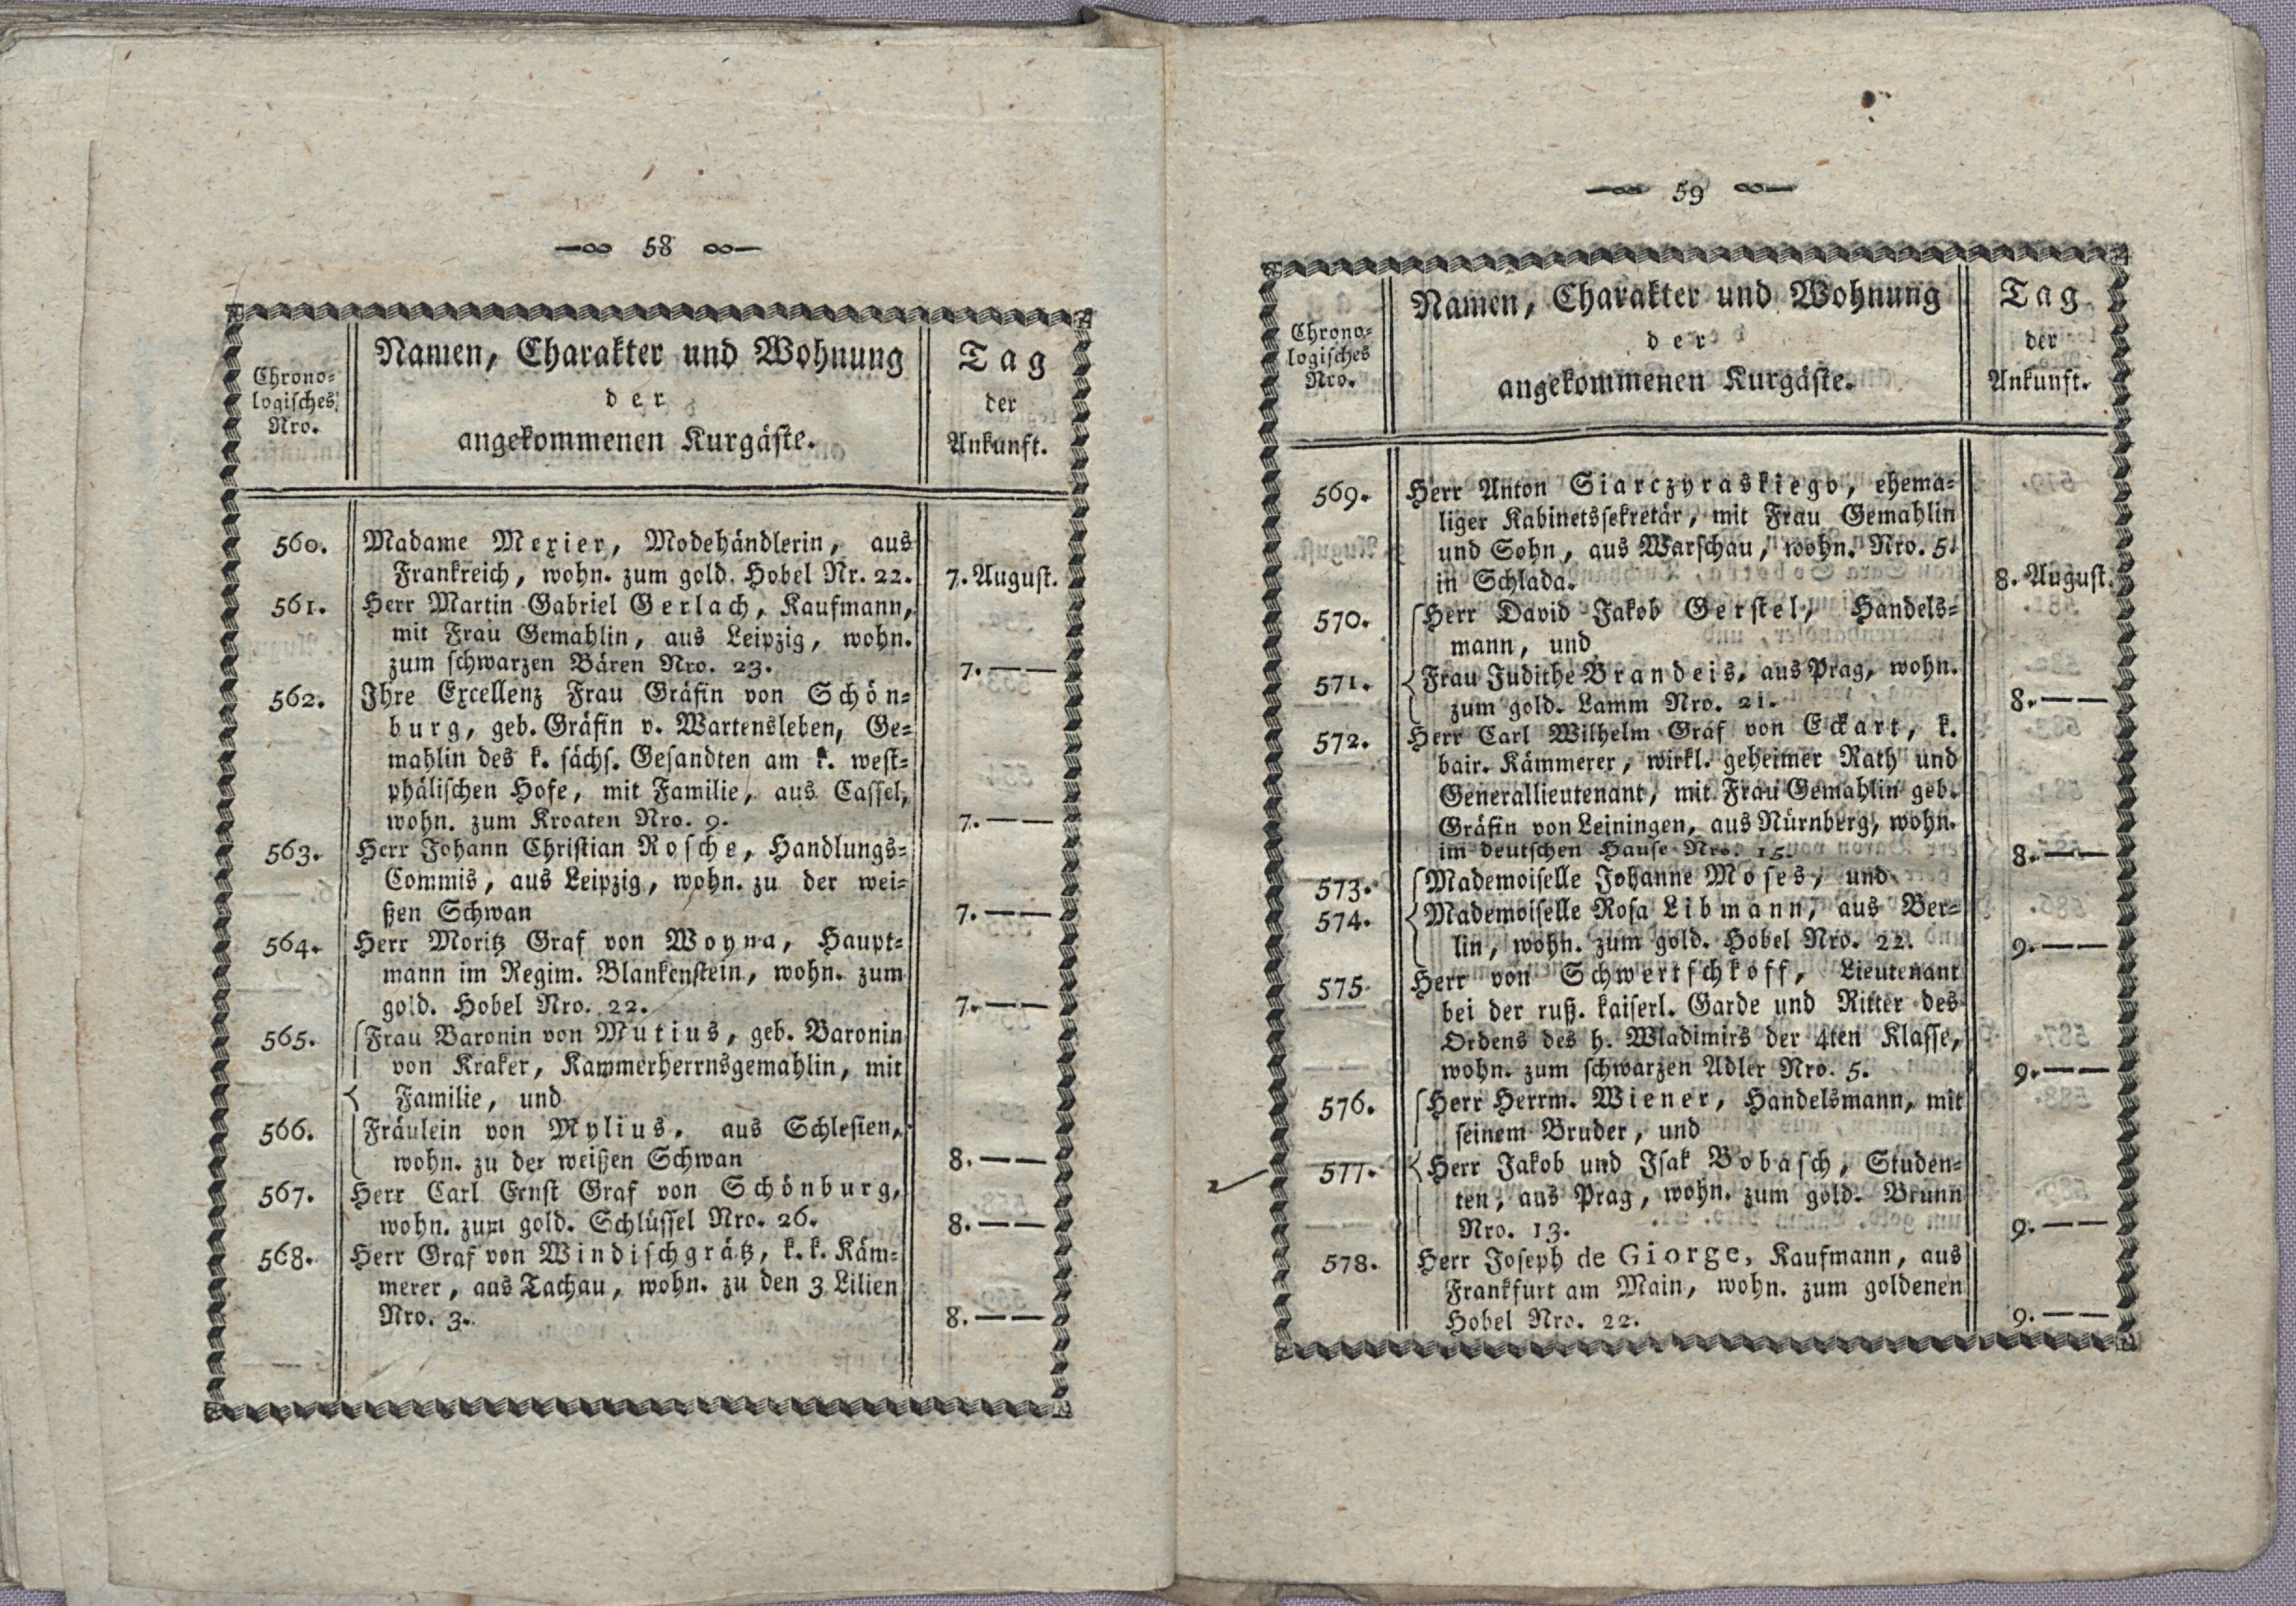 58
Chrono=
logisches
Nro.
Namen, Charakter und Wohnung
der
angekommenen Kurgäste.
Tag
der
Ankunft.
560. Madame Mexier, Modehändlerin, aus
Frankreich, wohn. zum gold. Hobel Nr. 22. 7. August.
561. Herr Martin Gabriel Gerlach, Kaufmann,
mit Frau Gemahlin, aus Leipzig, wohn.
zum schwarzen Bären Nro. 23. 7. — —
562. Ihre Excellenz Frau Gräfin von Schön=
burg, geb. Gräfin v. Wartensleben, Ge=
mahlin des k. sächs. Gesandten am k. west=
phälischen Hofe, mit Familie, aus Cassel,
wohn. zum Kroaten Nro. 9. 7. — —
563. Herr Johann Christian Rosche, Handlungs=
Commis, aus Leipzig, wohn. zu der wei=
ßen Schwan 7. — —
564. Herr Moritz Graf von Woyna, Haupt=
mann im Regim. Blankenstein, wohn. zum
gold. Hobel Nro. 22. 7. — —
565. Frau Baronin von Mutius, geb. Baronin
von Kraker, Kammerherrnsgemahlin, mit
Familie, und
566. Fräulein von Mylius, aus Schlesien,
wohn. zu der weißen Schwan 8. — —
567. Herr Carl Ernst Graf von Schönburg,
wohn. zum gold. Schlüssel Nro. 26. 8. — —
568. Herr Graf von Windischgrätz, k. k. Käm=
merer, aus Tachau, wohn. zu den 3 Lilien
Nro. 3. 8. — —
59
Chrono=
logisches
Nro.
Namen, Charakter und Wohnung
der
angekommenen Kurgäste.
Tag
der
Ankunft.
569. Herr Anton Siarczyraskiego, ehema=
liger Kabinetssekretär, mit Frau Gemahlin
und Sohn, aus Warschau, wohn. Nro. 5.
in Schlada. 8. August.
570. Herr David Jakob Gerstel, Handels=
mann, und
571. Frau Judithe Brandeis, aus Prag, wohn.
zum gold. Lamm Nro. 21. 8. — —
572. Herr Carl Wilhelm Graf von Eckart, k.
bair. Kämmerer, wirkl. geheimer Rath und
Generallieutenant, mit Frau Gemahlin geb.
Gräfin von Leiningen, aus Nürnberg, wohn.
im deutschen Hause Nro. 15. 8. — —
573. Mademoiselle Johanne Moses, und
574. Mademoiselle Rosa Libmann, aus Ber=
lin, wohn. zum gold. Hobel Nro. 22. 9. — —
575. Herr von Schwertschkoff, Lieutenant
bei der ruß. kaiserl. Garde und Ritter des
Ordens des h. Wladimirs der 4ten Klasse,
wohn. zum schwarzen Adler Nro. 5. 9. — —
576. Herr Herrm. Wiener, Handelsmann, mit
seinem Bruder, und
577. Herr Jakob und Isak Bobasch, Studen=
ten, aus Prag, wohn. zum gold. Brunn
Nro. 13. 9. — —
578. Herr Joseph de Giorge, Kaufmann, aus
Frankfurt am Main, wohn. zum goldenen
Hobel Nro. 22. 9. — —